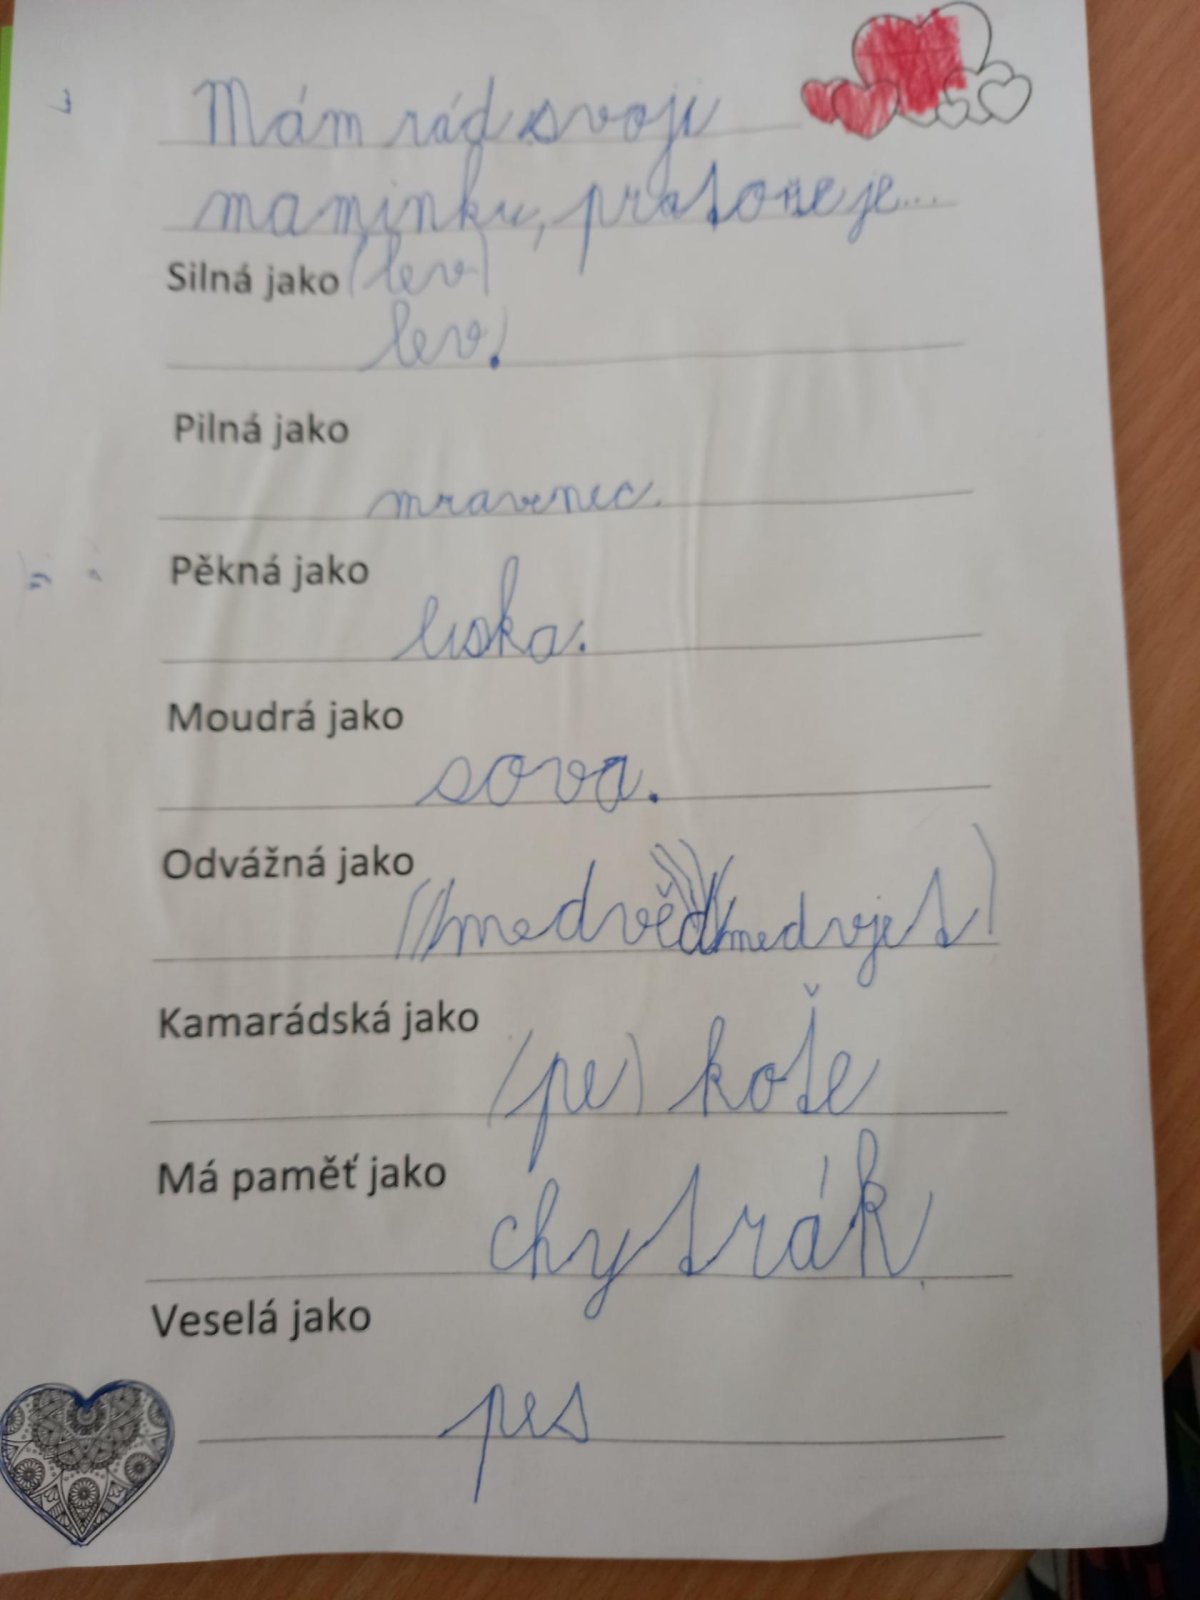 Mám rád svoji
maminku, protože je...
Silná jako (lev)
lev.
Pilná jako
mravenec.
Pěkná jako
liska.
Moudrá jako
sova.
Odvážná jako
((/medvěd))(medvjet)
Kamarádská jako
(pe) koťe
Má paměť jako
chytrák.
Veselá jako
pes